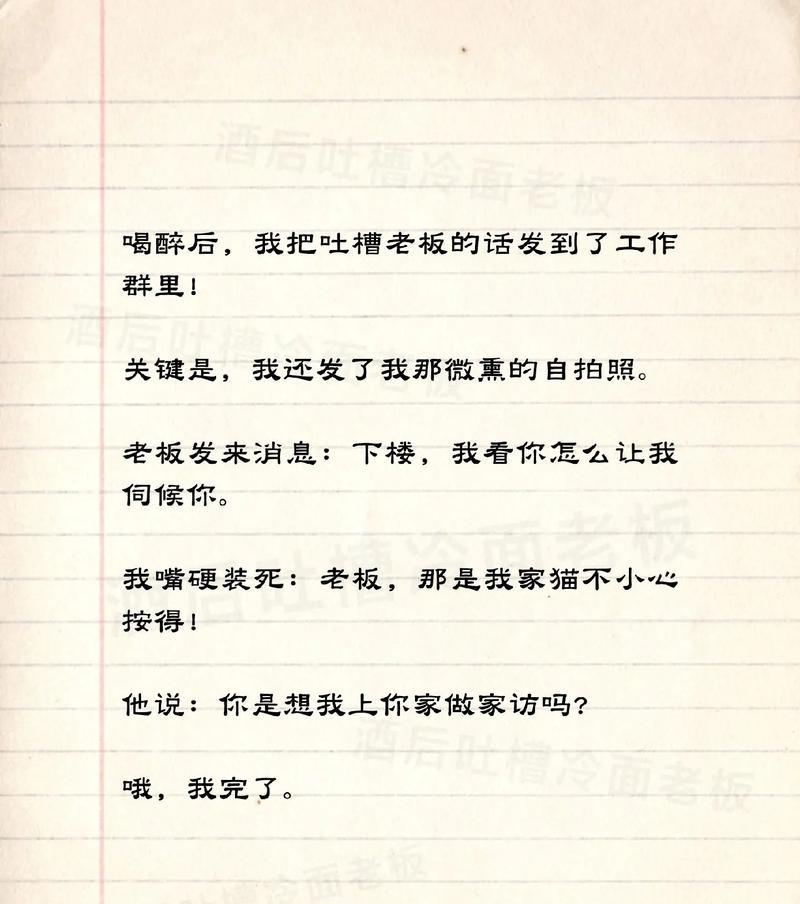 酒后吐槽冷面老板
喝醉后，我把吐槽老板的话发到了工作
群里！
酒后吐槽冷面老板
关键是，我还发了我那微熏的自拍照。
老板发来消息：下楼，我看你怎么让我
伺候你。
酒后吐槽冷面老板
我嘴硬装死：老板，那是我家猫不小心
按得！
他说：你是想我上你家做家访吗？
酒后吐槽冷面老板
哦，我完了。
吐槽冷面老板